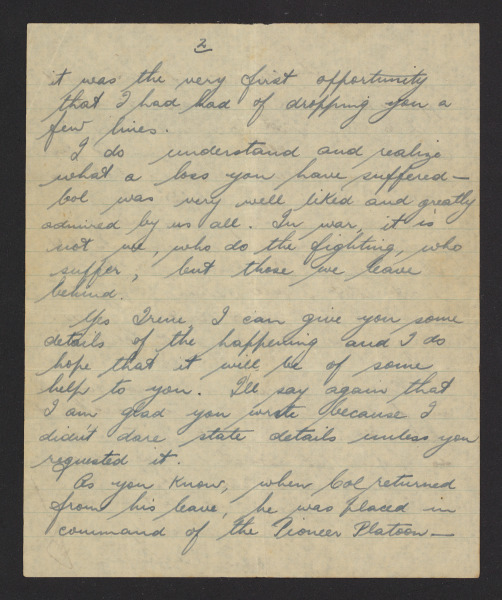 2
it was the very first opportunity
that I had had of dropping you a
few lines.
I do understand and realize
what a loss you have suffered—
Col was very well liked and greatly
admired by us all. In war, it is
not we, who do the fighting, who
suffer, but those we leave
behind.
Yes Irene, I can give you some
details of the happening and I do
hope that it will be of some
help to you. I'll say again that
I am glad you wrote because I
didn't dare state details unless you
requested it.
As you know, when Col returned
from his leave, he was placed in
command of the Pioneer Platoon—